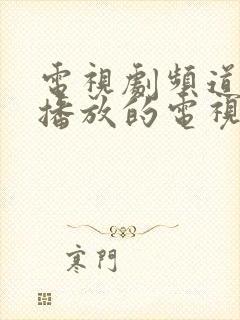 電視劇頻道
播放的電視
寒門